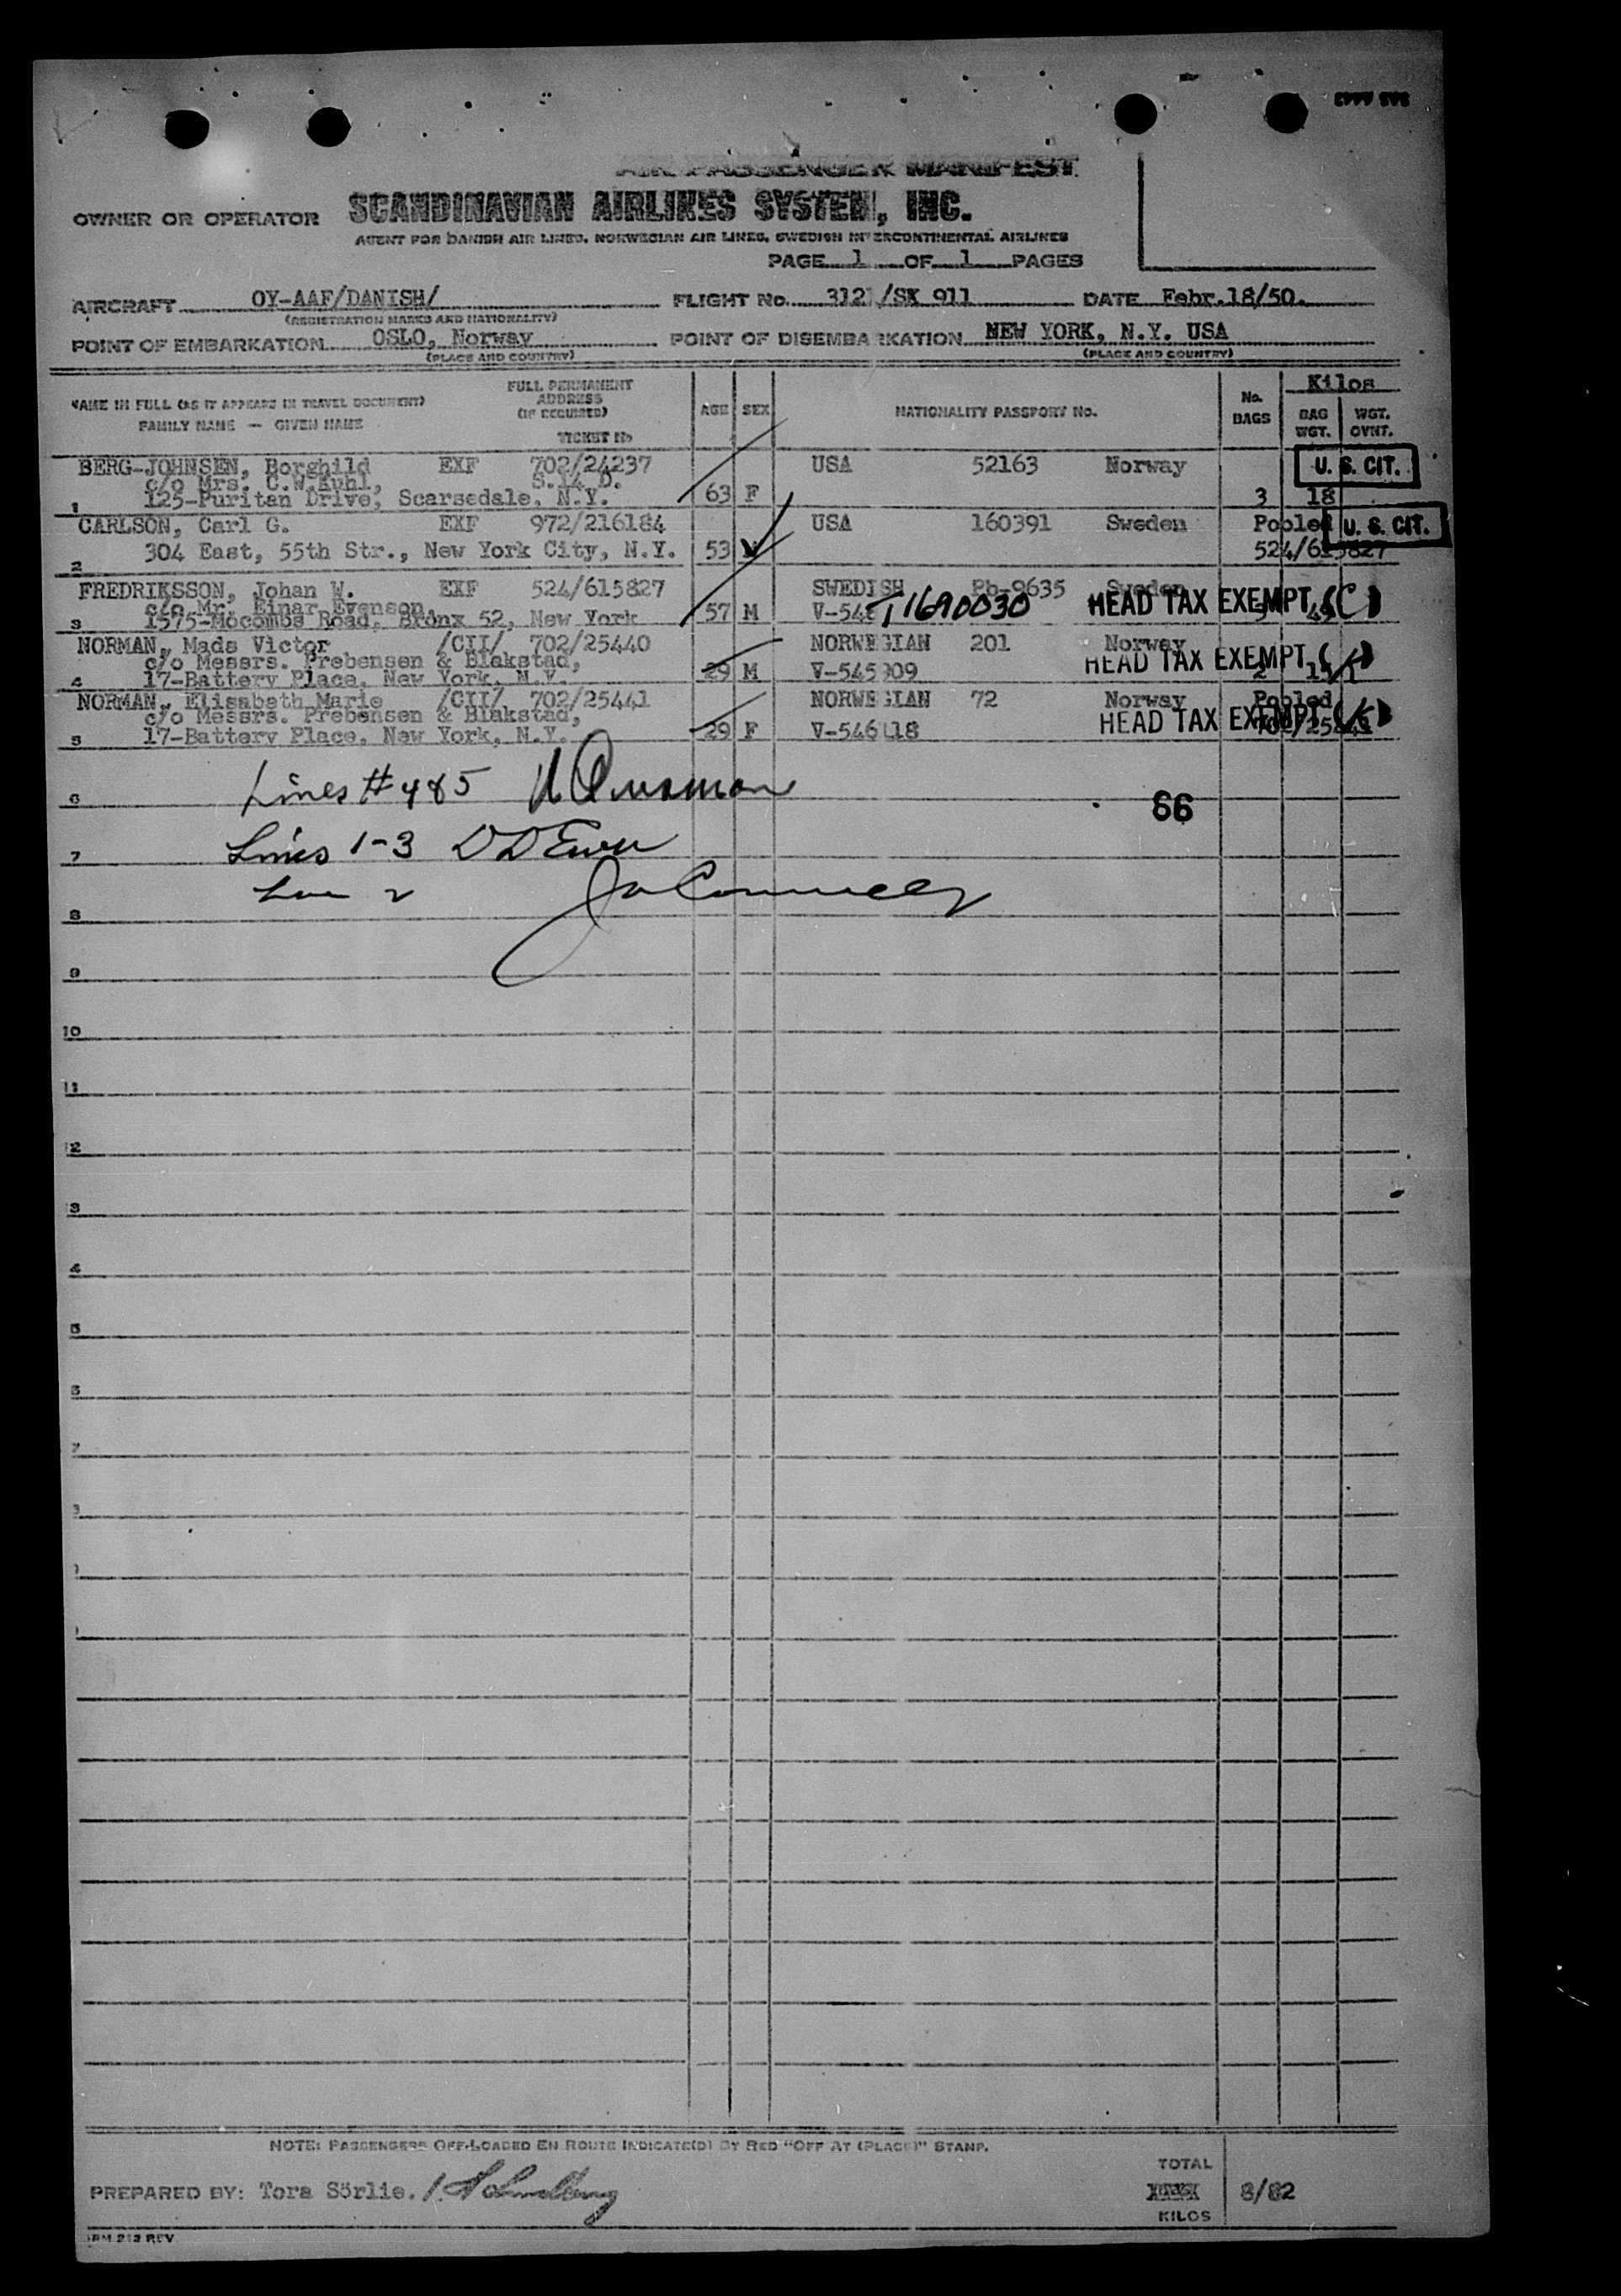 AIR PASSENGER MANIFEST
OWNER OR OPERATOR SCANDINAVIAN AIRLINES SYSTEM, INC.
AGENT FOR DANISH AIR LINES, NORWEGIAN AIR LINES, SWEDISH INTERCONTINENTAL AIRLINES
PAGE 1 OF 1 PAGES
AIRCRAFT OY-AAF/DANISH/ FLIGHT No. 312 /SK 911 DATE Febr.18/50.
(REGISTRATION MARKS AND NATIONALITY)
POINT OF EMBARKATION OSLO, Norway POINT OF DISEMBARKATION NEW YORK, N.Y. USA
(PLACE AND COUNTRY) (PLACE AND COUNTRY)
NAME IN FULL (AS IT APPEARS IN TRAVEL DOCUMENT)
FAMILY NAME — GIVEN NAME
FULL PERMANENT ADDRESS (IF REQUIRED)
TICKET No
AGE SEX NATIONALITY PASSPORT No. No. BAGS Kilos BAG WGT. WGT. OVNT.
BERG-JOHNSEN, Borghild EXF 702/24237 USA 52163 Norway U. S. CIT.
c/o Mrs. C.W.Kuhl, S.14 D.
1 125-Puritan Drive, Scarsedale, N.Y. 63 F 3 18
CARLSON, Carl G. EXF 972/216184 USA 160391 Sweden Pooled U. S. CIT.
2 304 East, 55th Str., New York City, N.Y. 53 M 524/615827
FREDRIKSSON, Johan W. EXF 524/615827 SWEDISH Pb-9635 Sweden
c/o Mr. Einar Evenson, T1690030 HEAD TAX EXEMPT (C)
3 1575-Mocombs Road, Bronx 52, New York 57 M V-548
NORMAN, Mads Victor /CII/ 702/25440 NORWEGIAN 201 Norway
c/o Messrs. Prebensen & Blakstad, HEAD TAX EXEMPT
4 17-Battery Place, New York, N.Y. 29 M V-545909 2
NORMAN, Elisabeth Marie /CII/ 702/25441 NORWEGIAN 72 Norway Pooled
c/o Messrs. Prebensen & Blakstad, HEAD TAX EXEMPT
5 17-Battery Place, New York, N.Y. 29 F V-546 18
6 Lines # 4&5
66
7 Lines 1-3
8 Line 2
9
10
11
12
NOTE: PASSENGERS OFF-LOADED EN ROUTE INDICATE(D) BY RED "OFF AT (PLACE)" STAMP.
PREPARED BY: Tora Sörlie.
TOTAL
KILOS
8/82